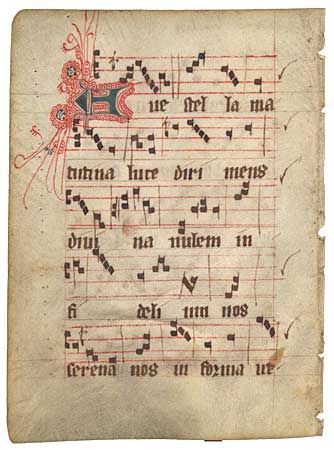 Aue stel la ma
tutina luce diri mens
diui na nubem in
fi deli um nos
serena nos in forma ue